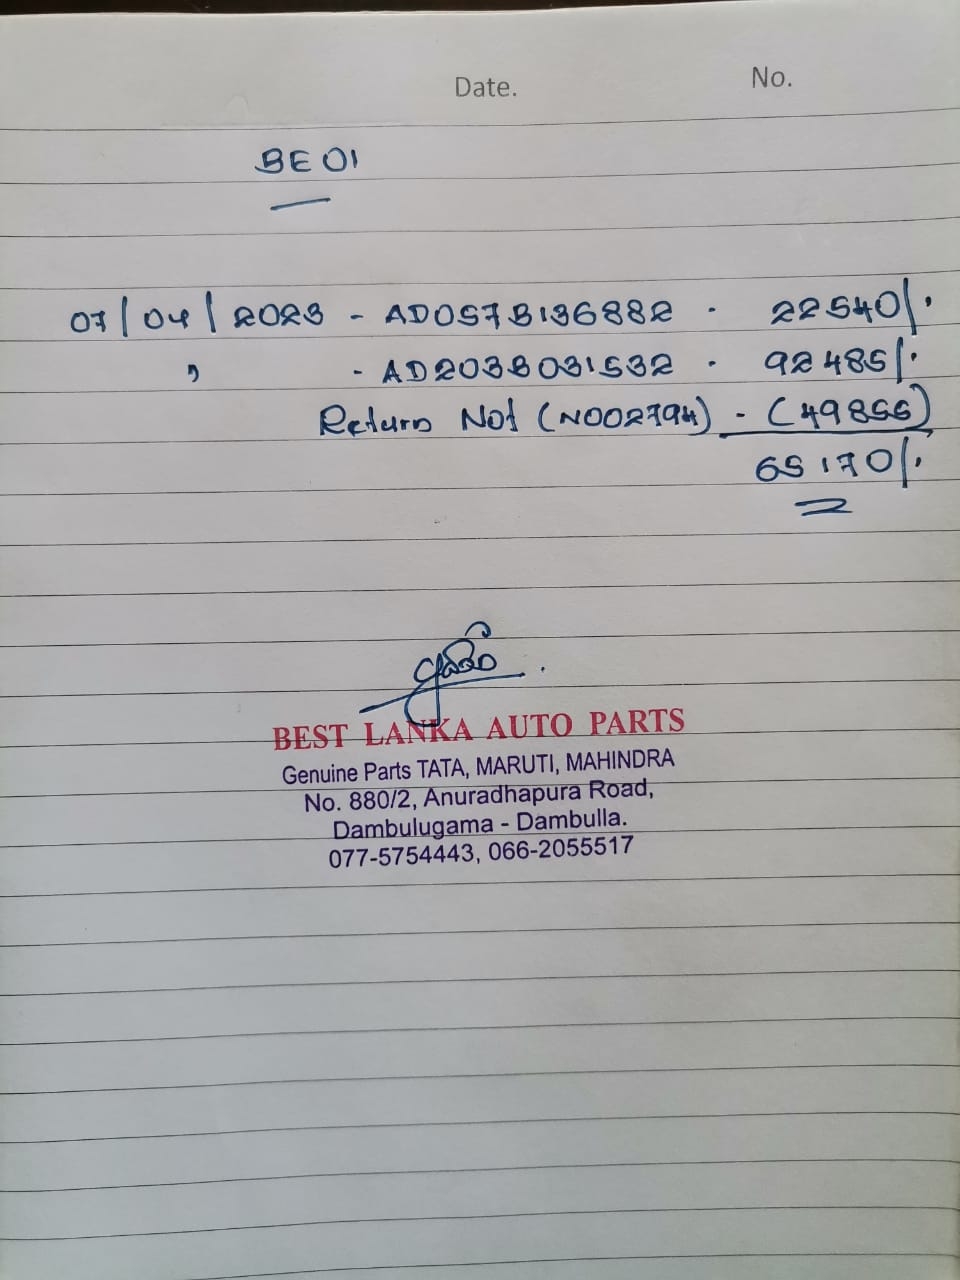 Date.
No.
BE 01
07/04/2023 - AD057B136882 . 22540/.
" - AD203B031532 . 92485/.
Return Not (N002794) - (49855)
65170/.
BEST LANKA AUTO PARTS
Genuine Parts TATA, MARUTI, MAHINDRA
No. 880/2, Anuradhapura Road,
Dambulugama - Dambulla.
077-5754443, 066-2055517